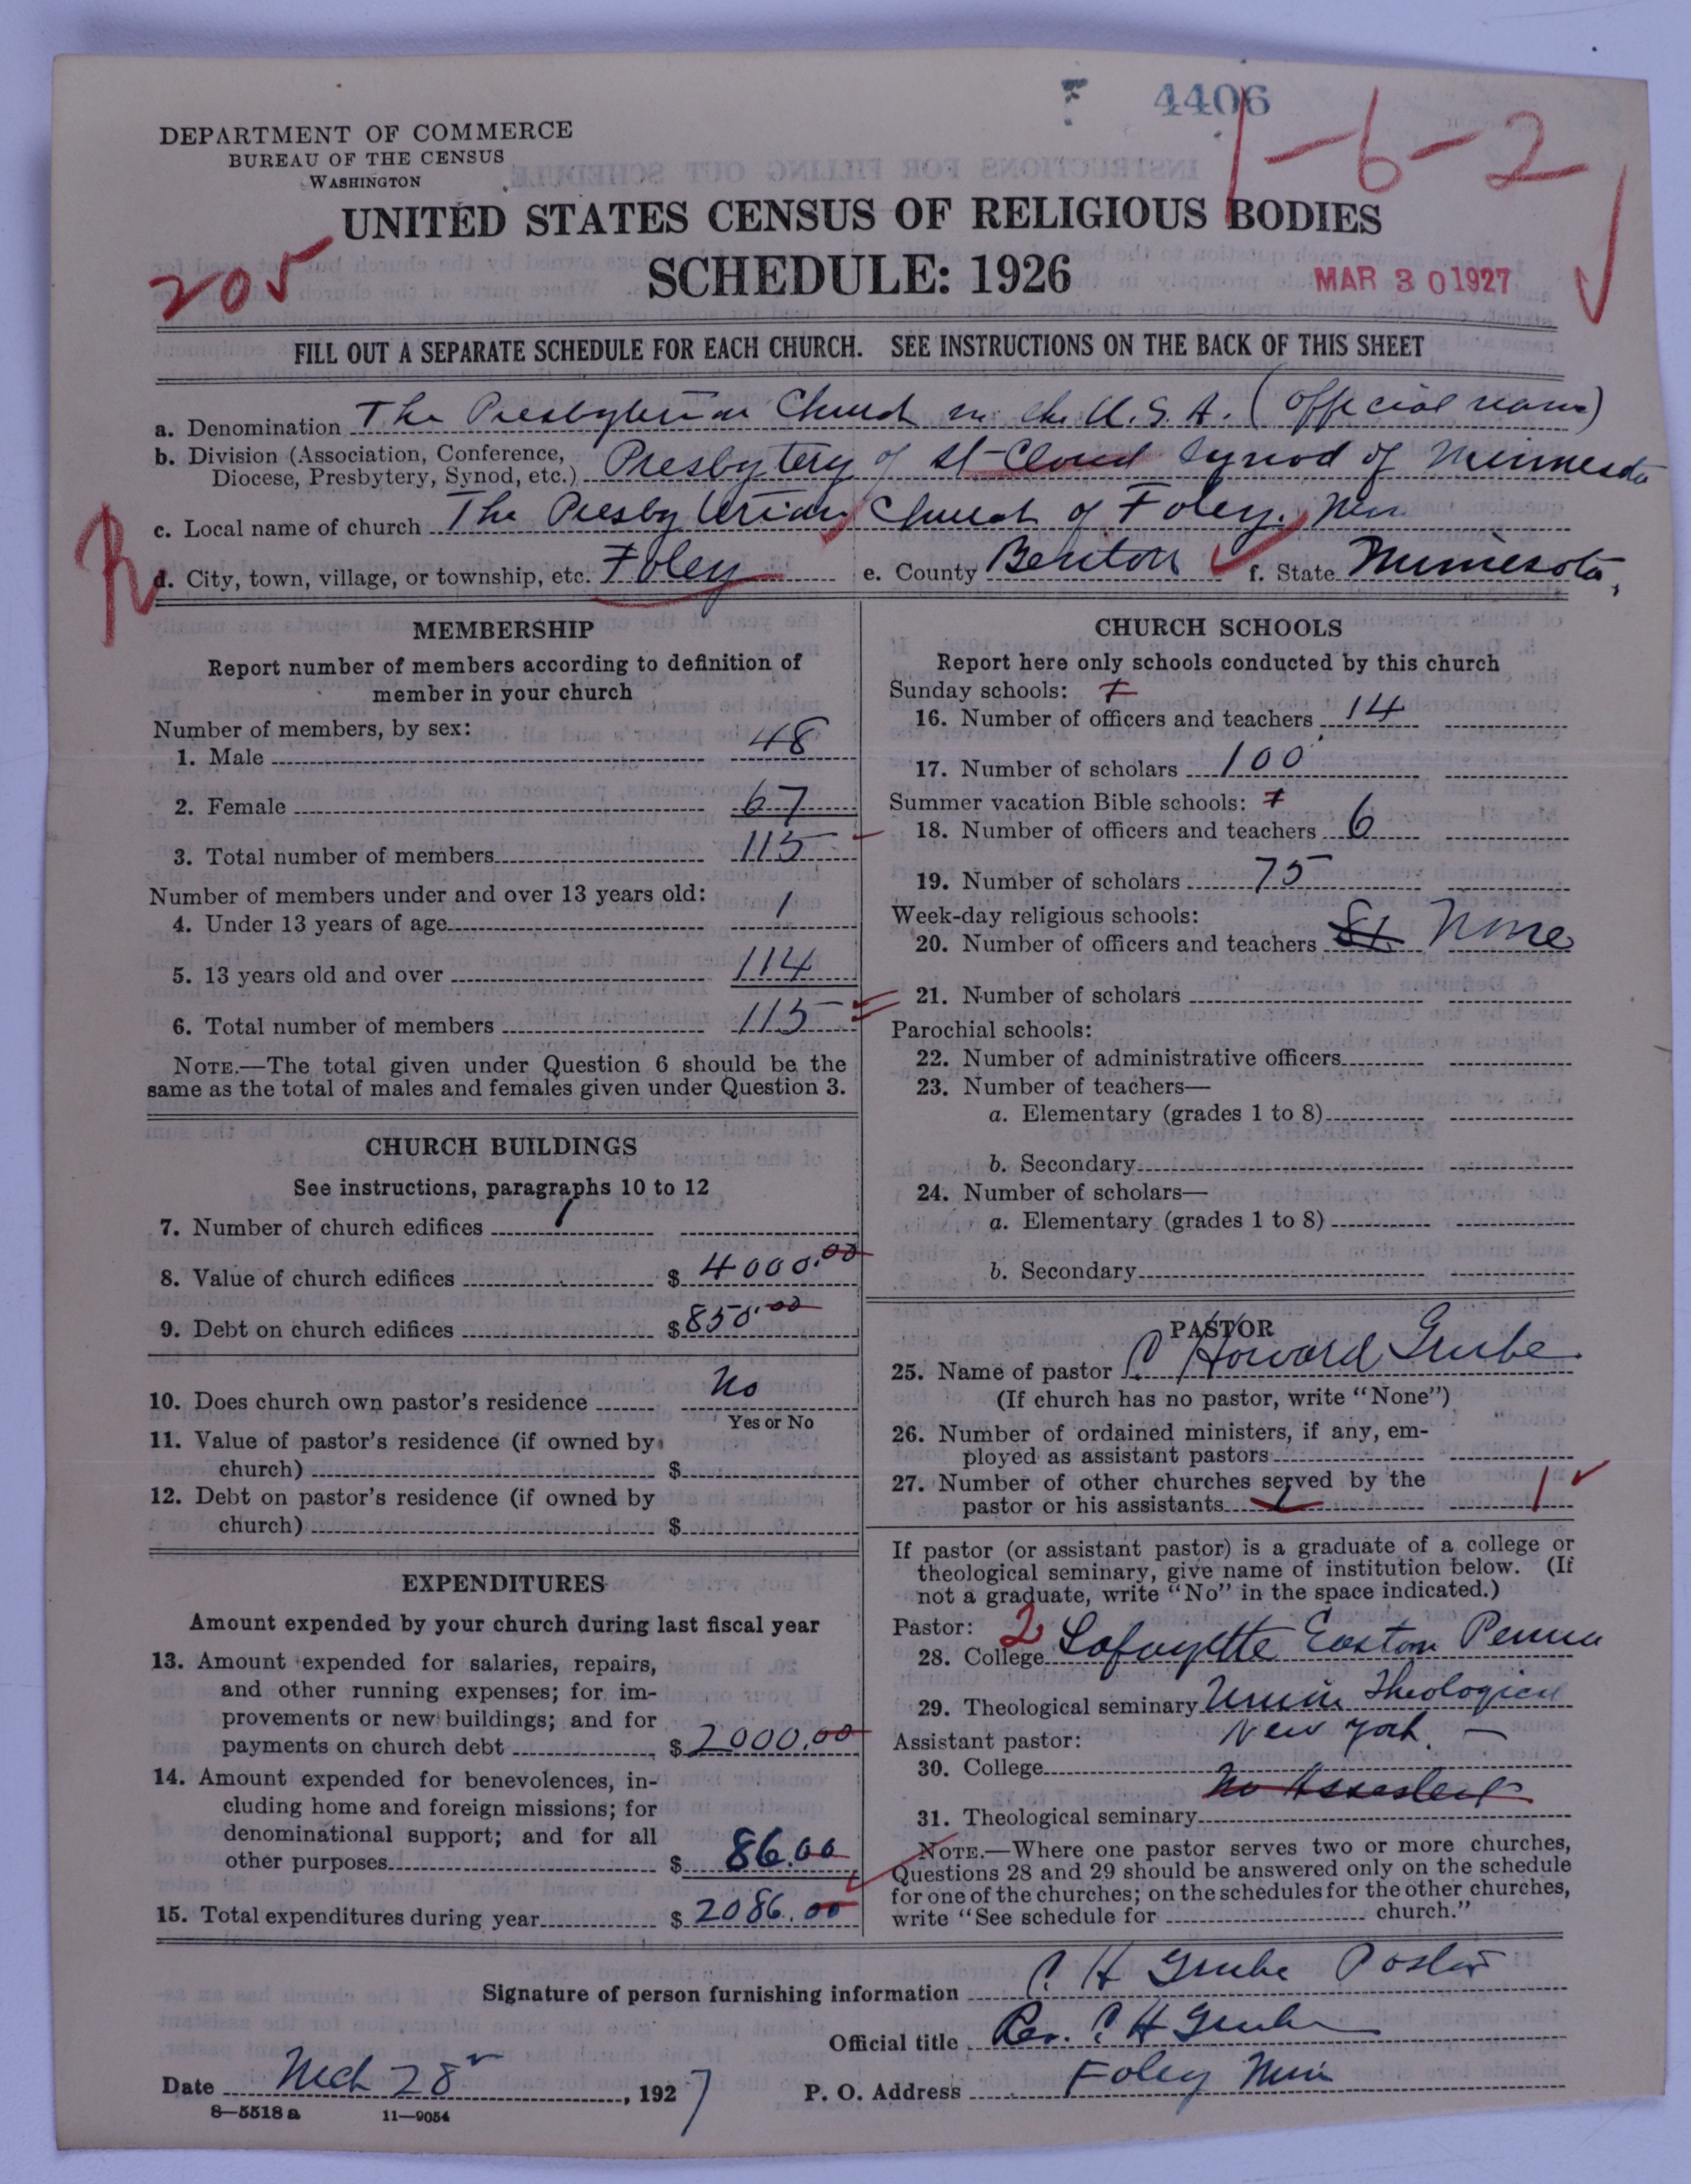 4406
1-6-2
DEPARTMENT OF COMMERCE
BUREAU OF THE CENSUS
WASHINGTON
UNITED STATES CENSUS OF RELIGIOUS BODIES
205
SCHEDULE: 1926
MAR 30 1927
FILL OUT A SEPARATE SCHEDULE FOR EACH CHURCH. SEE INSTRUCTIONS ON THE BACK OF THIS SHEET
a. Denomination The Presbyterian Church in the U.S.A. (Official name)
b. Division (Association, Conference,
Diocese, Presbytery, Synod, etc.) Presbytery of St Cloud Synod of Minnesota
c. Local name of church The Presbyterian Church of Foley, Minn
R
d. City, town, village, or township, etc. Foley e. County Benton f. State Minnesota,
MEMBERSHIP
Report number of members according to definition of
member in your church
Number of members, by sex:
1. Male 48
2. Female 67
3. Total number of members 115
Number of members under and over 13 years old:
4. Under 13 years of age 1
5. 13 years old and over 114
6. Total number of members 115
NOTE.—The total given under Question 6 should be the
same as the total of males and females given under Question 3.
CHURCH BUILDINGS
See instructions, paragraphs 10 to 12
7. Number of church edifices 1
8. Value of church edifices $ 4000.00
9. Debt on church edifices $ 850.00
10. Does church own pastor's residence No
Yes or No
11. Value of pastor's residence (if owned by
church) $
12. Debt on pastor's residence (if owned by
church) $
EXPENDITURES
Amount expended by your church during last fiscal year
13. Amount expended for salaries, repairs,
and other running expenses; for im-
provements or new buildings; and for
payments on church debt $ 2000.00
14. Amount expended for benevolences, in-
cluding home and foreign missions; for
denominational support; and for all
other purposes $ 86.00
15. Total expenditures during year $ 2086.00
CHURCH SCHOOLS
Report here only schools conducted by this church
Sunday schools:
16. Number of officers and teachers 14
17. Number of scholars 100
Summer vacation Bible schools:
18. Number of officers and teachers 6
19. Number of scholars 75
Week-day religious schools:
20. Number of officers and teachers None
21. Number of scholars
Parochial schools:
22. Number of administrative officers
23. Number of teachers—
a. Elementary (grades 1 to 8)
b. Secondary
24. Number of scholars—
a. Elementary (grades 1 to 8)
b. Secondary
PASTOR
25. Name of pastor C Howard Grube
(If church has no pastor, write "None")
26. Number of ordained ministers, if any, em-
ployed as assistant pastors
27. Number of other churches served by the
pastor or his assistants 1 1
If pastor (or assistant pastor) is a graduate of a college or
theological seminary, give name of institution below. (If
not a graduate, write "No" in the space indicated.)
Pastor: 2
28. College Lafayette Easton Penna
29. Theological seminary Union Theological
New York.
Assistant pastor:
30. College
No Assistant
31. Theological seminary
NOTE.—Where one pastor serves two or more churches,
Questions 28 and 29 should be answered only on the schedule
for one of the churches; on the schedules for the other churches,
write "See schedule for church."
Signature of person furnishing information C H Grube Pastor
Official title Rev. C H Grube
Date Mch 28, 1927 P. O. Address Foley Minn
8—5518 a 11—9054